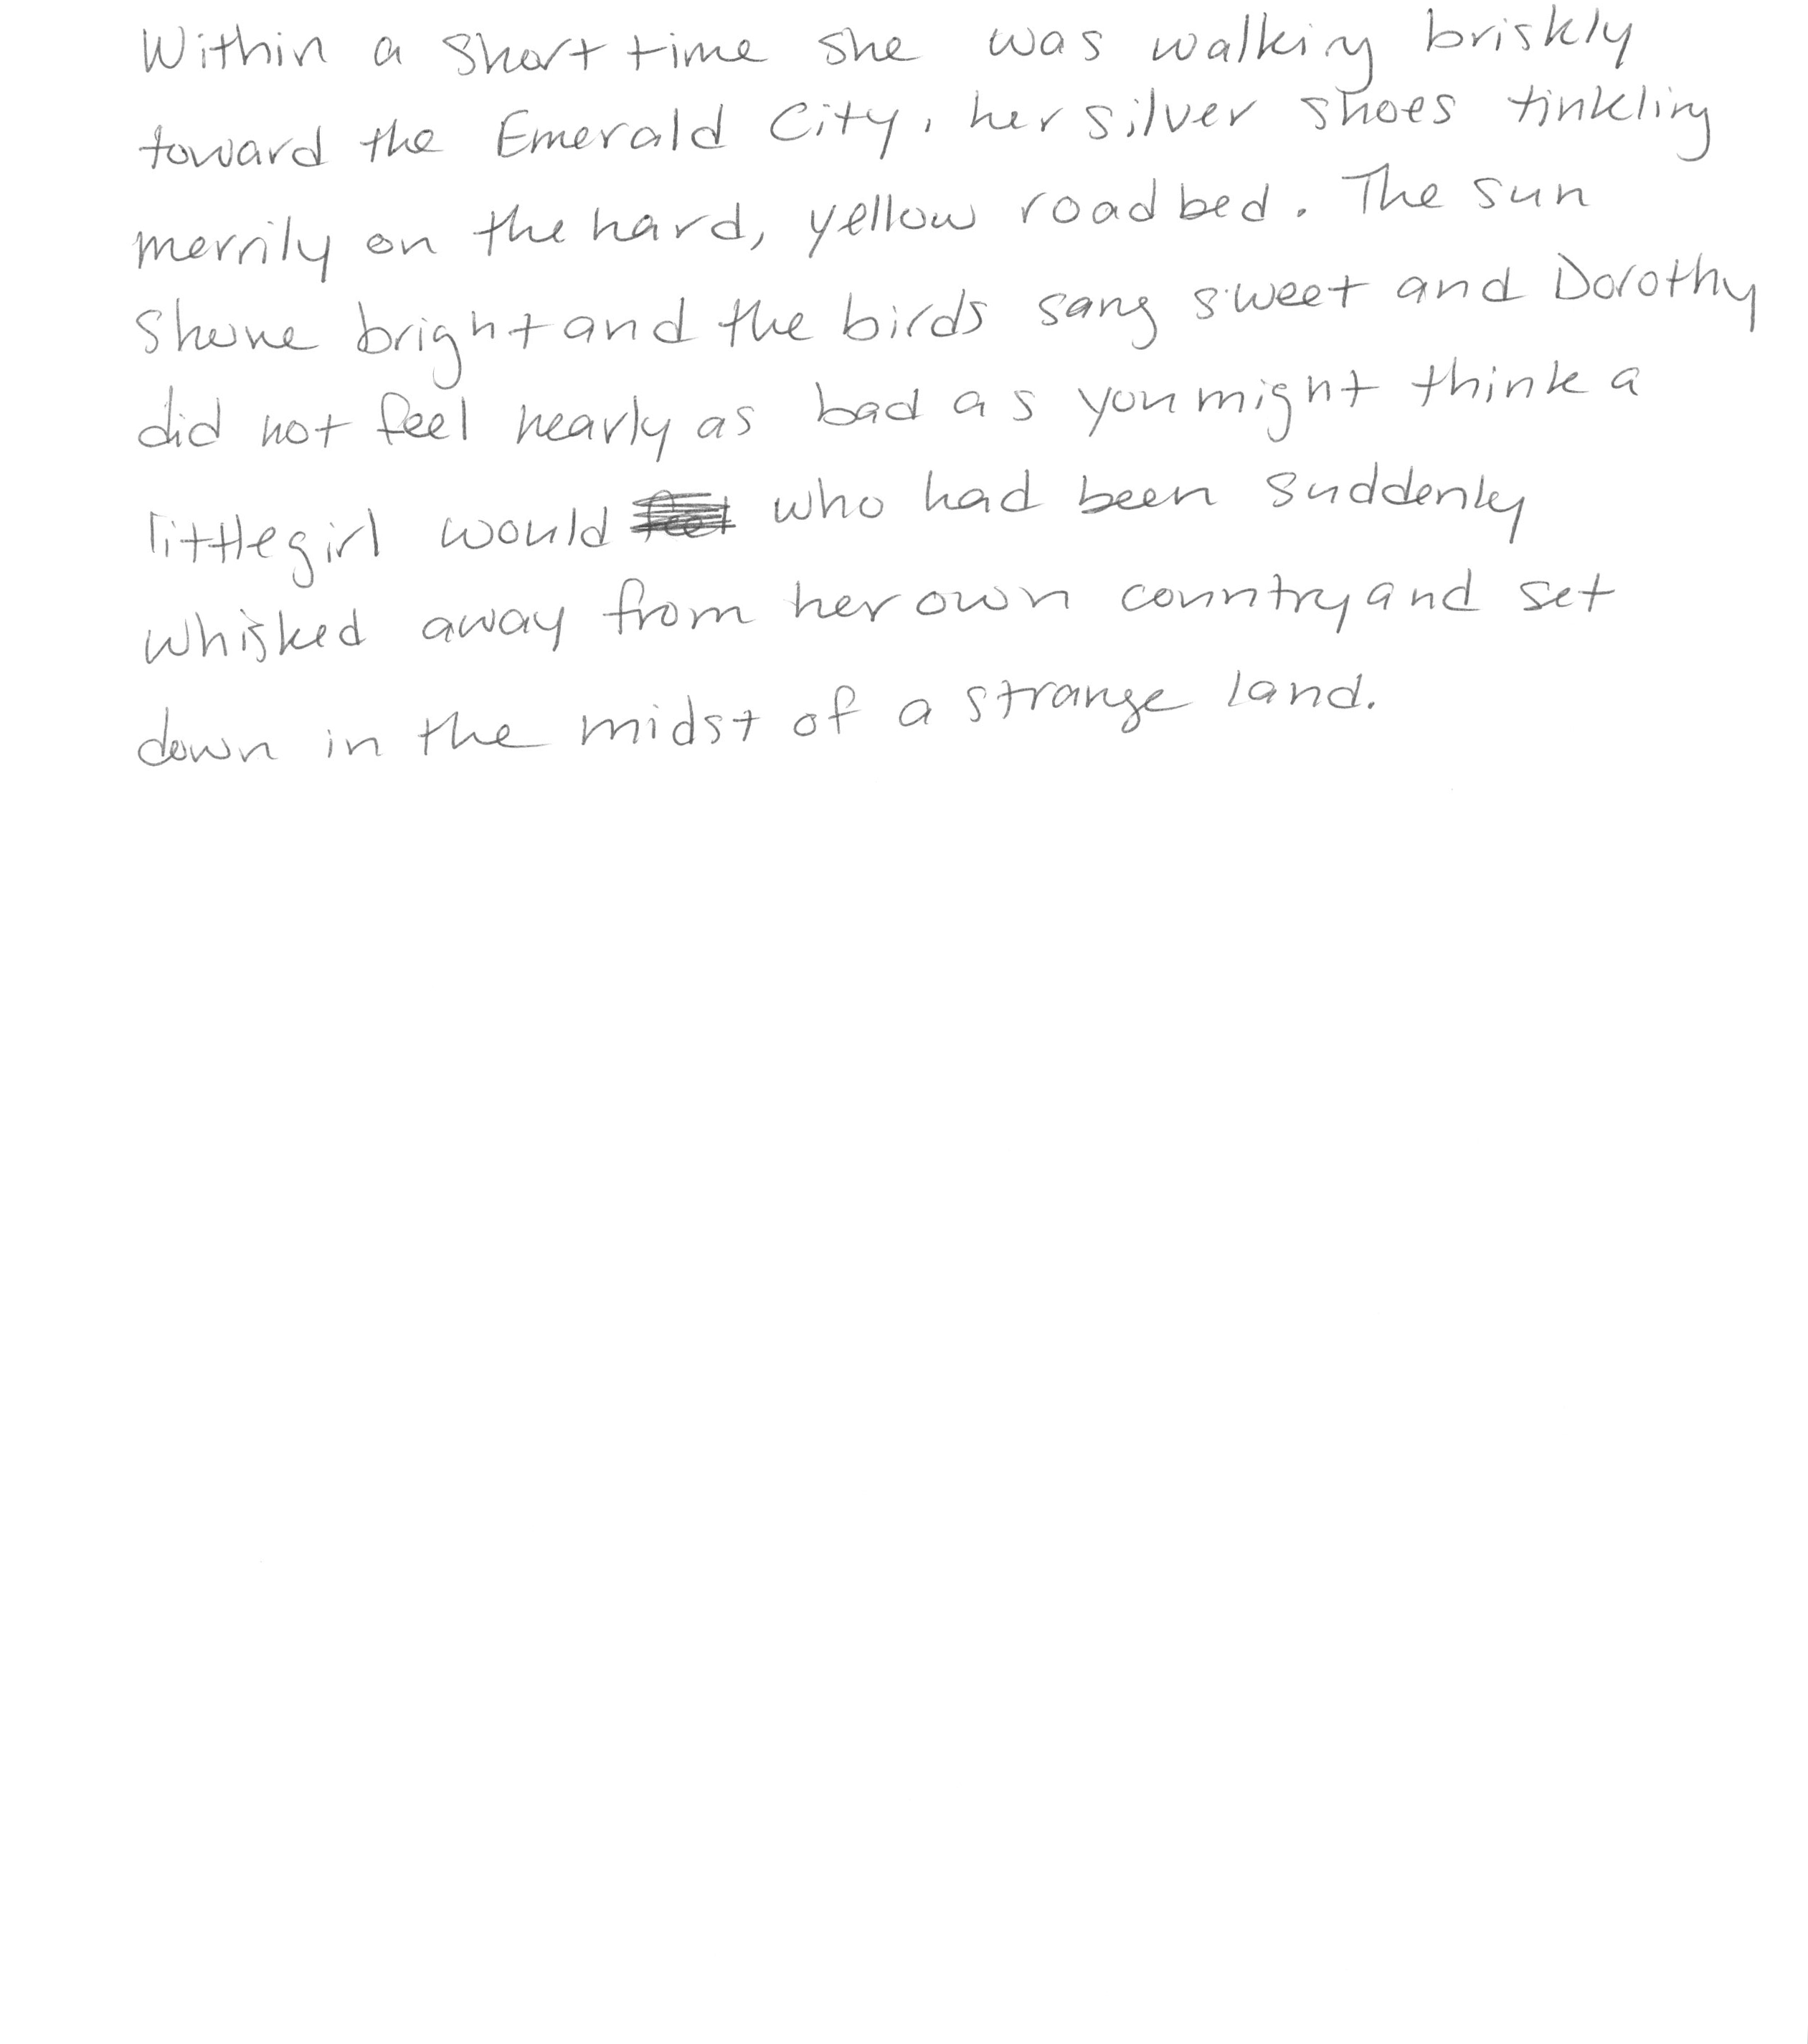 Within a short time she was walking briskly
toward the Emerald City, her silver shoes tinkling
merrily on the hard, yellow roadbed. The sun
shone bright and the birds sang sweet and Dorothy
did not feel nearly as bad as you might think a
little girl would who had been suddenly
whisked away from her own country and set
down in the midst of a strange land.